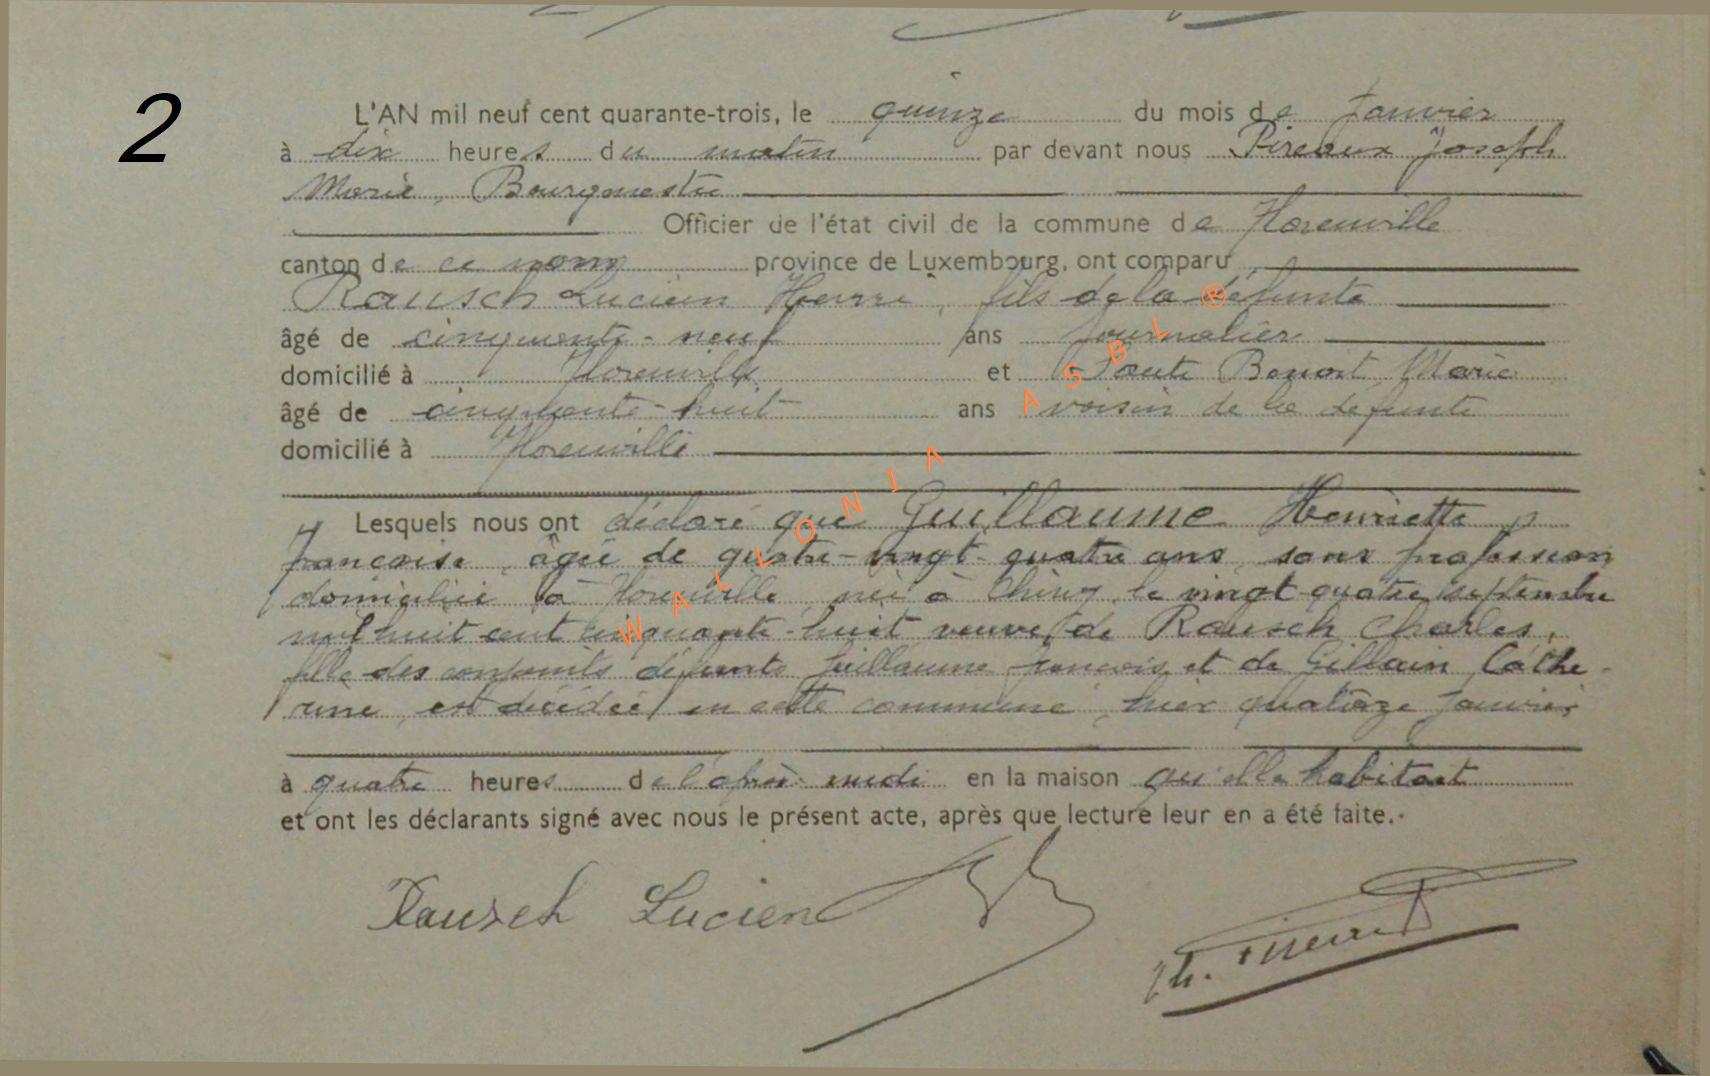 2
L'AN mil neuf cent quarante-trois, le quinze du mois de Janvier
à dix heures du matin par devant nous Pireaux Joseph
Marie, Bourgmestre
Officier de l'état civil de la commune de Florenville
canton de ce nom province de Luxembourg, ont comparu
Rausch Lucien Henri, fils de la défunte
âgé de cinquante-neuf ans journalier
domicilié à Florenville et Benoit Marie
âgé de cinquante-huit ans voisin de la défunte
domicilié à Florenville
Lesquels nous ont déclaré que Guillaume Henriette
françoise, âgée de quatre-vingt-quatre ans, sans profession
domiciliée à Florenville, née à Chiny, le vingt-quatre septembre
mil huit cent cinquante-huit veuve de Rausch Charles,
fille des conjoints défunts Guillaume françois et de Gillain Cathe-
rine, est décédée en cette commune, hier quatorze janvier
à quatre heures de l'après-midi en la maison qu'elle habitait
et ont les déclarants signé avec nous le présent acte, après que lecture leur en a été faite.
Rausch Lucien
WALLONIA ASBL ®